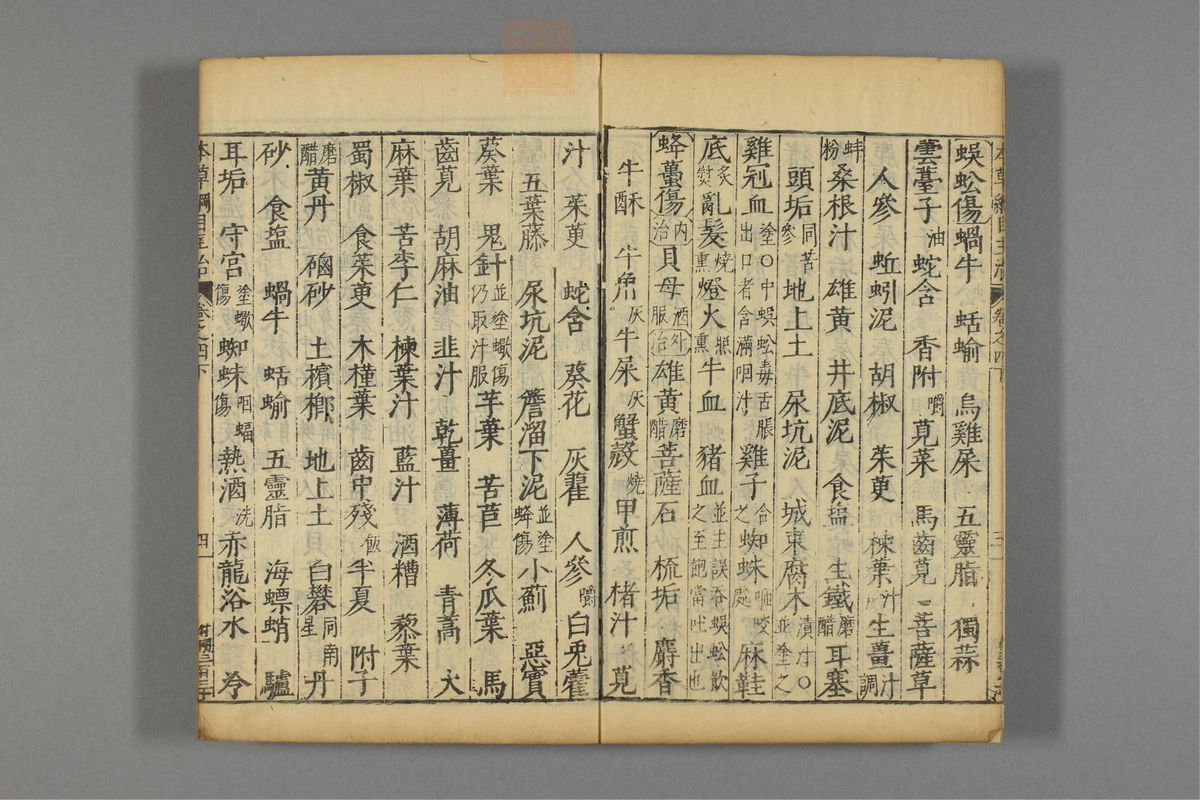 蜈蚣傷蝸牛 蛞蝓 烏雞屎 五靈脂 獨蒜
雲薹子油蛇含 香附嚼莧菜 馬齒莧 菩薩草
人參 蚯蚓泥 胡椒 茱萸 楝葉汁生薑汁調
蚌粉桑根汁 雄黃 井底泥 食鹽 生鐵磨醋耳塞
頭垢同苦參地上土 屎坑泥 城東腐木漬汁○並塗之
雞冠血塗○中蜈蚣毒舌脹出口者含滿咽汁雞子合之蜘蛛咂咬處麻鞋
底炙熨亂髮燒熏燈火照熏牛血 豬血並主誤吞蜈蚣飲之至飽當吐出也
蜂蠆傷內治貝母酒服外治雄黃磨醋菩薩石 梳垢 麝香
牛酥 牛角灰牛屎灰蟹殼燒甲煎 楮汁 莧
汁 茱萸 蛇含 葵花 灰藋 人參嚼白兔藿
五葉藤 尿坑泥 簷溜下泥並塗蜂傷小薊 惡實
葵葉 鬼針並塗蠍傷仍取汁服芋葉 苦苣 冬瓜葉 馬
齒莧 胡麻油 韭汁 乾薑 薄荷 青蒿 大
麻葉 苦李仁 楝葉汁 藍汁 酒糟 藜葉
蜀椒 食茱萸 木槿葉 齒中殘飯半夏 附子
磨醋黃丹 硇砂 土檳榔 地上土 白礬同南星丹
砂 食鹽 蝸牛 蛞蝓 五靈脂 海螵蛸 驢
耳垢 守宮塗蠍傷蜘蛛咽蝠傷熱酒洗赤龍浴水 冷